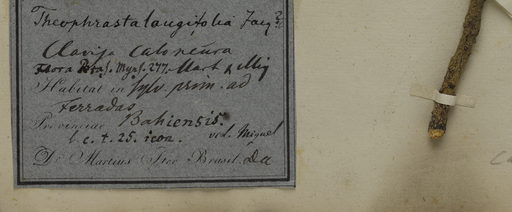 Theophrasta longifolia Jacq
Clavija caloneura
Flora Bras. Myrs. 277. Mart & Miq
Habitat in sylv. prim. ad
Ferradas
Provinciae Bahiensis.
l. c. t. 25. icon. ved. Miquel
D. Martius Iter Brasil. Da